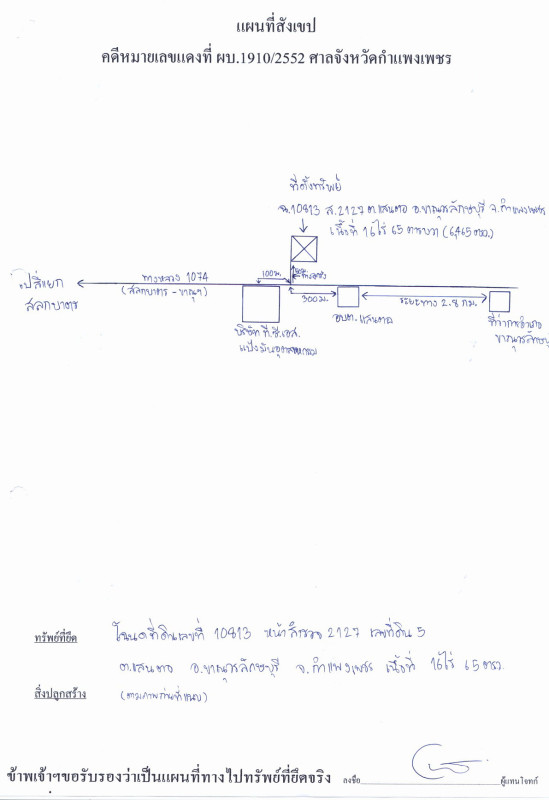 แผนที่สังเขป
คดีหมายเลขแดงที่ ผบ.1910/2552 ศาลจังหวัดกำแพงเพชร
ที่ตั้งทรัพย์
ฉ.10813 ส.2127 ต.แสนตอ อ.ขาณุวรลักษบุรี จ.กำแพงเพชร
เนื้อที่ 16ไร่ 65 ตารางวา (6,465 ตรว.)
100ม.
ไปสี่แยก
สลกบาตร
ทางหลวง 1074
(สลกบาตร - ขาณุฯ)
300ม.
ระยะทาง 2.8 กม.
บริษัท ที.ซี.เอส.
แป้งมันอุตสาหกรรม
อบต.แสนตอ
ที่ว่าการอำเภอ
ขาณุวรลักษบุรี
ทรัพย์ที่ยึด
โฉนดที่ดินเลขที่ 10813 หน้าสำรวจ 2127 เลขที่ดิน 5
ต.แสนตอ อ.ขาณุวรลักษบุรี จ.กำแพงเพชร เนื้อที่ 16ไร่ 65 ตรว.
สิ่งปลูกสร้าง
(ตามภาพถ่ายที่แนบ)
ข้าพเจ้าฯขอรับรองว่าเป็นแผนที่ทางไปทรัพย์ที่ยึดจริง ลงชื่อ ผู้แทนโจทก์